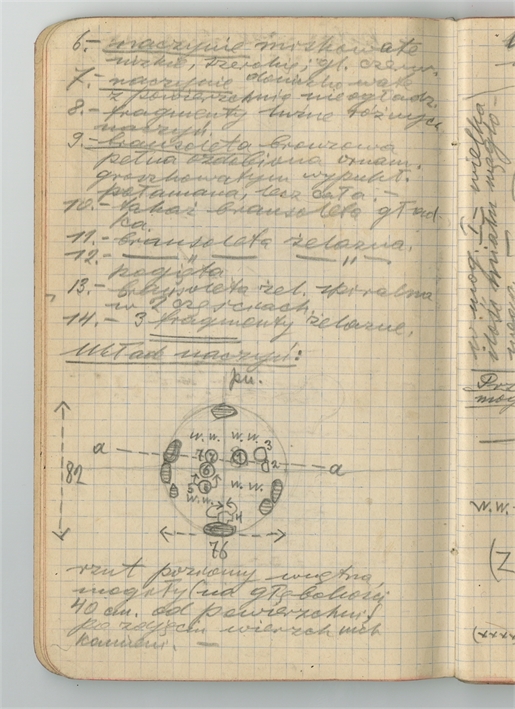 6.- naczynie miskowate
nizkie, szerokie, gł. czerw.
7.- naczynie donicowate
z powierzchnią nieogładz.
8.- fragmenty luźne różnych
naczyń.
9.- bransoleta bronzowa
pełna ozdobiona ornam.
groszkowatym wypukł.
połamana, lecz cała. -
10.- takaż bransoleta gład-
ka.
11.- bransoleta żelazna.
12.- — " — — " —
pogięta
13.- bransoleta żel. spiralna
w 2 częściach.
14.- 3 fragmenty żelazne.
Układ naczyń:
pn.
w.w. w.w.
a a
82
7 2 1 3
6 2
5 8 w.w.
w.w.
4
76
rzut poziomy wnętrza
mogiły (na głębokości
40 cm. od powierzchni)
po zdjęciu wierzchnich
kamieni. —
w mog. I — wielka
ilość
Prz
mog
w.w.